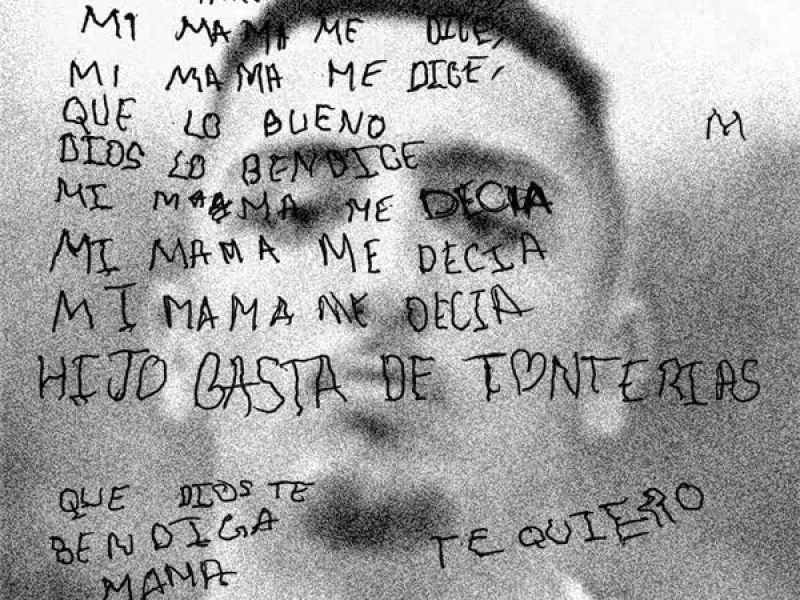 MI MAMA ME DICE,
MI MAMA ME DICE,
QUE LO BUENO
M
DIOS LO BENDICE
MI MAAMA ME DECIA
MI MAMA ME DECIA
MI MAMA ME DECIA
HIJO BASTA DE TONTERIAS
QUE DIOS TE
BENDIGA
MAMA
TE QUIERO